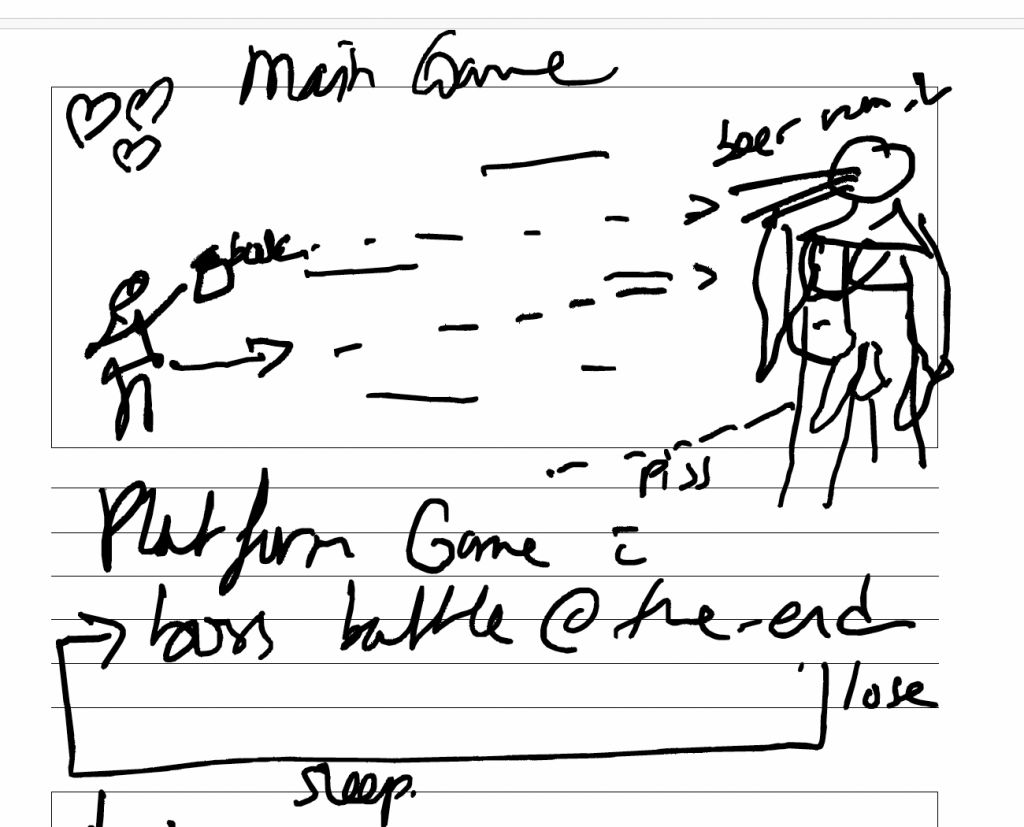 Main Game
beer vomit
piss
Platform Game =
boss battle @ the end
lose
sleep.